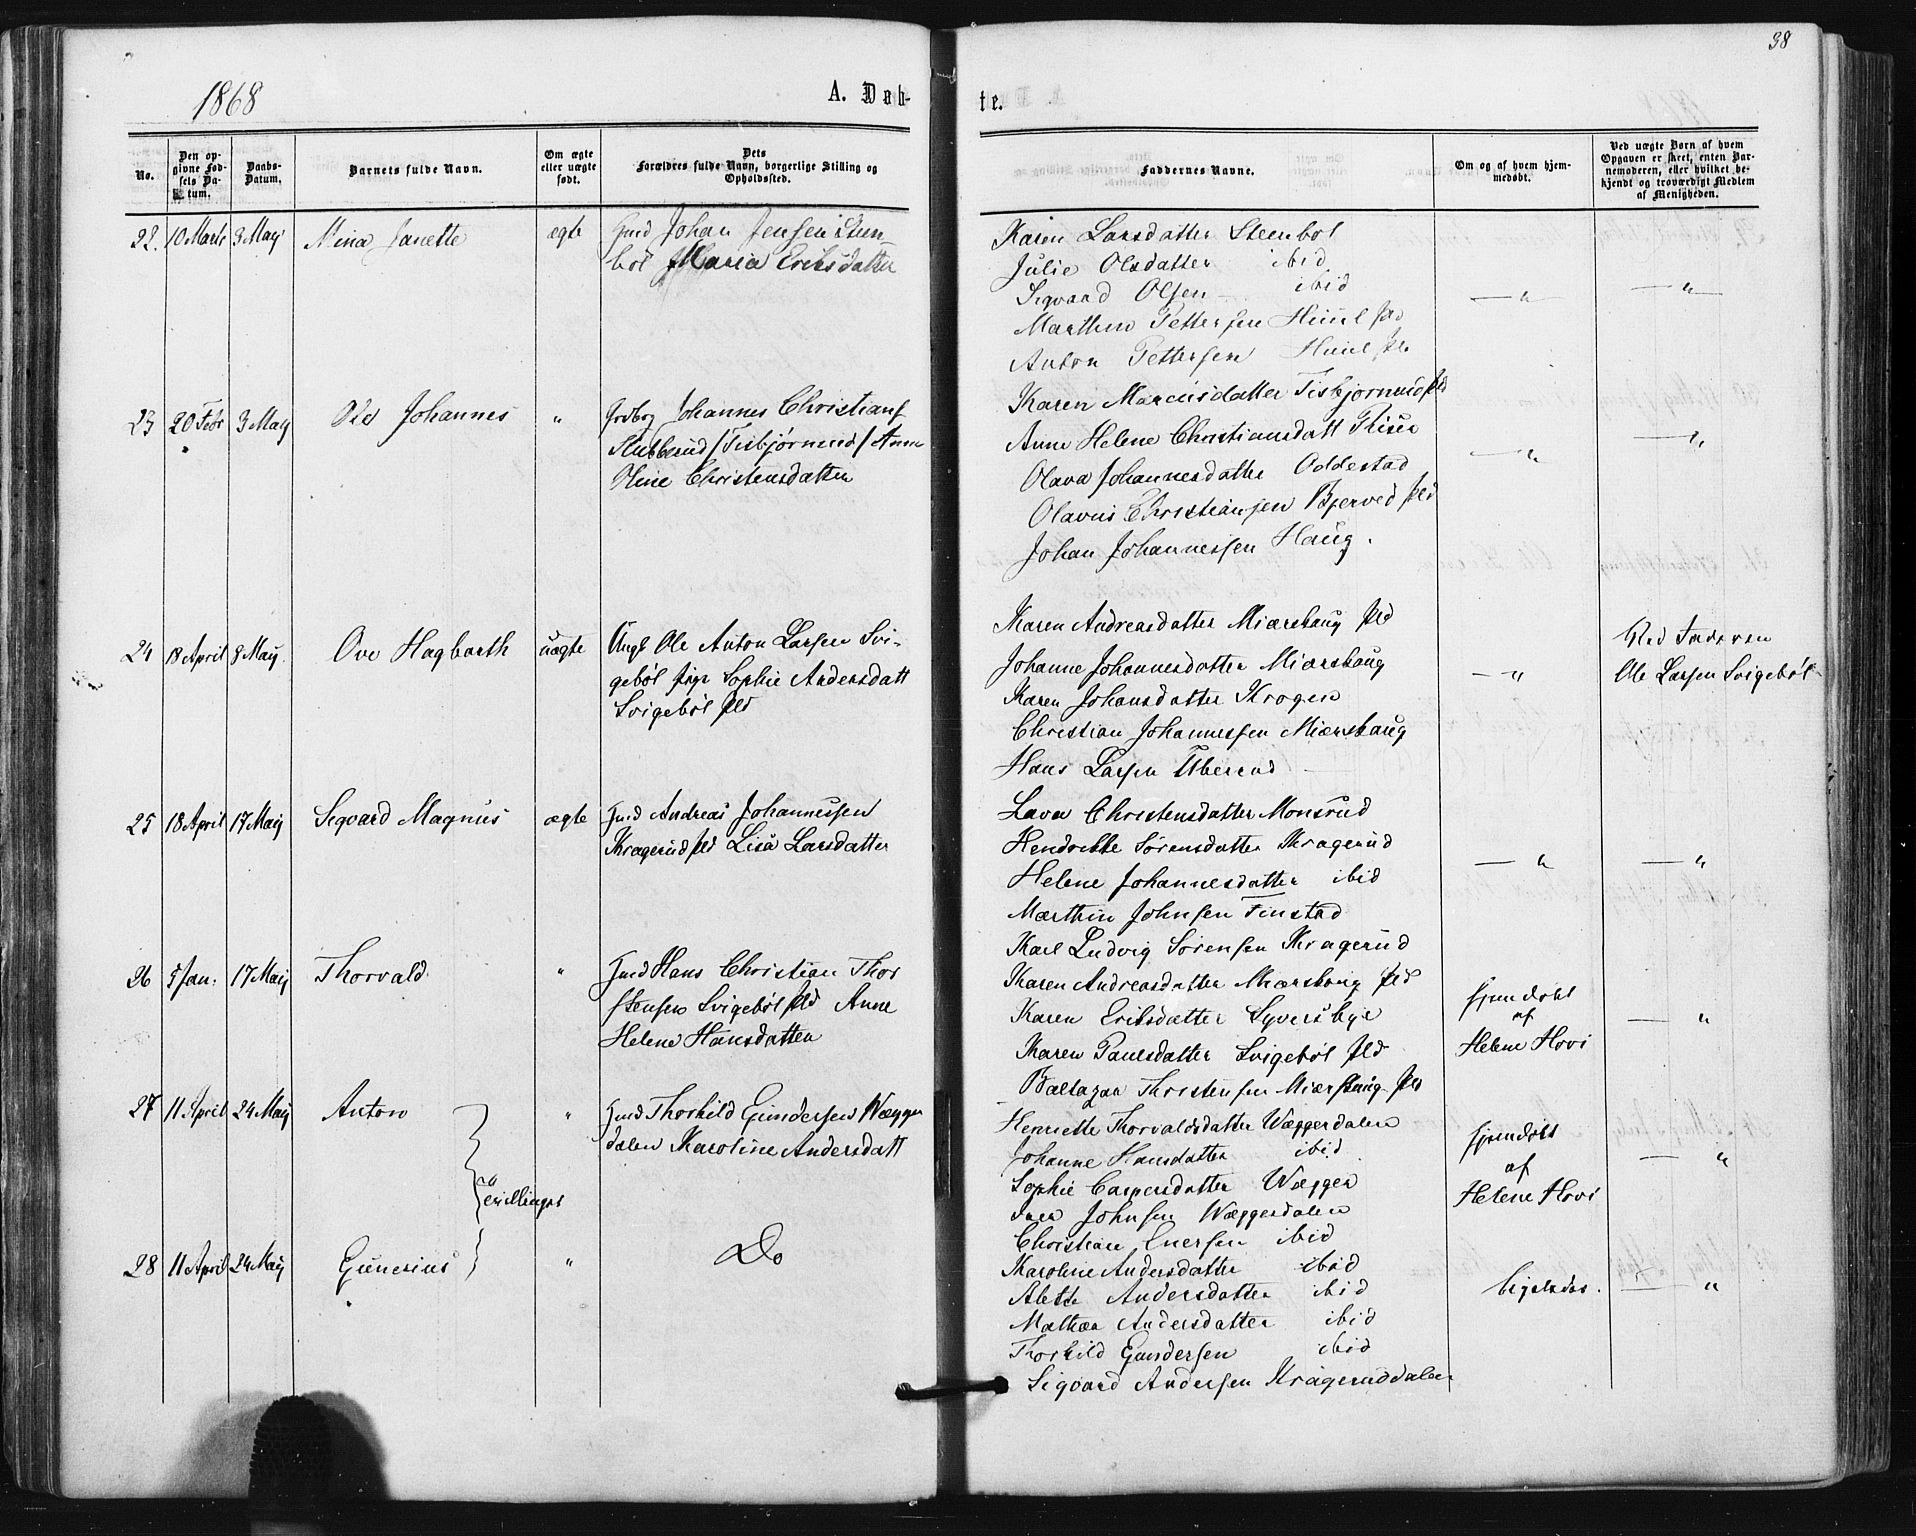 38
1868
A. Døb-
te.
No.
Den op-
givne Fød-
sels Da-
tum.
Daabs-
Datum.
Barnets fulde Navn.
Om ægte
eller uægte
født.
Dets
Forældres fulde Navn, borgerlige Stilling og
Opholdssted.
Faddernes Navne.
Om og af hvem hjem-
medøbt.
Ved uægte Børn af hvem
Opgaven er skeet, enten Bar-
nemoderen, eller hvilket be-
kjendt og troværdigt Medlem
af Menigheden.
22. 10 Marts 3 Maij Mina Janette ægte Gmd Johan Jensen Steen-
bøl Maria Eriksdatter
Karen Larsdatter Steenbøl
Julie Olsdatter ibid
Sigvard Olsen ibid — " — " —
Marthin Pettersen pld
Anton Pettersen pld
23 20 Febr 3 Maij Ole Johannes " Johannes Christians
Stubberud / Tisbjørnrud / Anne
Oline Christensdatter
Karen Marcusdatter Tisbjørnrud pld
Anne Helene Christiansdatt
Olava Johannesdatter Oddestad — " — "
Olavus Christiansen Bjerved pld
Johan Johannessen Haug.
24 18 April 8 Maij Ove Hagbarth uægte Ungk Ole Anton Larsen Svi-
gebøl pige Sophie Andersdatt
Svigebøl pld
Karen Andreasdatter Miærskaug pld
Johanne Johannesdatter Miærskaug
Karen Johansdatter Krogen — "
Christian Johannessen Miærskaug
Hans Larsen Uberrud
Ved Faderen
Ole Larsen Svigebøl
25 18 April 17 Maij Sigvard Magnus ægte Gmd Andreas Johannessen
Kragerud pld Lisa Larsdatter
Lava Christensdatter Monsrud
Sørensdatter Kragerud
Helene Johannesdatter ibid — " — "
Marthin Johnsen Finstad
Karl Ludvig Sørensen Kragerud
26 5 Jan. 17 Maij Thorvald. " Gmd Hans Christian Thor
stensen Svigebøl pld Anne
Helene Hansdatter
Karen Andreasdatter Miærskoug pld
Karen Eriksdatter Syversbye
Karen Paulsdatter Svigebøl pld
Baltazar Thristensen Miærskaug pld
hjemdøbt
af
Helene Hovi — "
27 11 April 24 Maij Anton " Gmd Thorkild Gundersen Wægger
dalen Karoline Andersdatt
Tvillinger
Henriette Thorvaldsdatter Wæggerdalen
Johanne Hansdatter ibid
Sophie Caspersdatter Wægger
Iver Johnsen Wæggerdalen
Christian Iversen ibid
hjemdøbt
af
Helene Hovi — "
28 11 April 24 Maij Gunerius " Do
Karoline Andersdatter ibid
Alette Andersdatter ibid
Mathea Andersdatter ibid
Thorkild Gundersen ibid
Sigvard Andersen Krageruddalen
ligeledes. — "